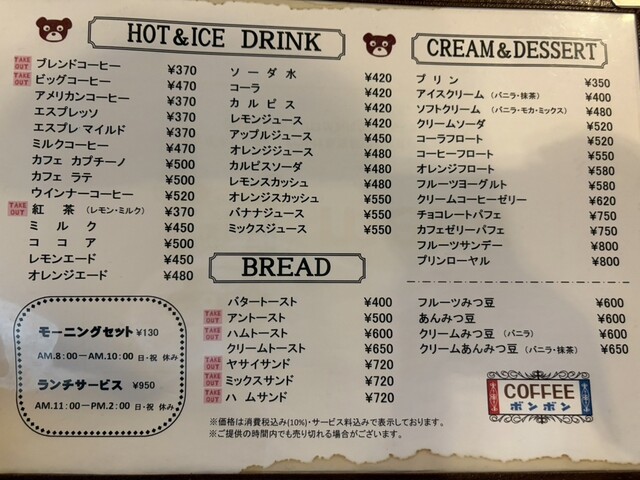 HOT & ICE DRINK
TAKE OUT ブレンドコーヒー ¥370
TAKE OUT ビッグコーヒー ¥470
アメリカンコーヒー ¥370
エスプレッソ ¥370
エスプレ マイルド ¥370
ミルクコーヒー ¥470
カフェ カプチーノ ¥500
カフェ ラテ ¥500
ウインナーコーヒー ¥520
TAKE OUT 紅 茶 (レモン・ミルク) ¥370
ミ ル ク ¥450
コ コ ア ¥500
レモンエード ¥450
オレンジエード ¥480
ソ ー ダ 水 ¥420
コーラ ¥420
カ ル ピ ス ¥420
レモンジュース ¥420
アップルジュース ¥450
オレンジジュース ¥480
カルピスソーダ ¥480
レモンスカッシュ ¥480
オレンジスカッシュ ¥550
バナナジュース ¥550
ミックスジュース ¥550
CREAM & DESSERT
プ リ ン ¥350
アイスクリーム (バニラ・抹茶) ¥400
ソフトクリーム (バニラ・モカ・ミックス) ¥480
クリームソーダ ¥520
コーラフロート ¥520
コーヒーフロート ¥550
オレンジフロート ¥580
フルーツヨーグルト ¥580
クリームコーヒーゼリー ¥620
チョコレートパフェ ¥750
カフェゼリーパフェ ¥750
フルーツサンデー ¥800
プリンローヤル ¥800
フルーツみつ豆 ¥600
あんみつ豆 ¥600
クリームみつ豆 (バニラ) ¥600
クリームあんみつ豆 (バニラ・抹茶) ¥650
BREAD
バタートースト ¥400
TAKE OUT アントースト ¥500
TAKE OUT ハムトースト ¥600
クリームトースト ¥650
TAKE OUT ヤサイサンド ¥720
TAKE OUT ミックスサンド ¥720
TAKE OUT ハ ムサンド ¥720
モーニングセット ¥130
AM.8:00－AM.10:00 日・祝 休み
ランチサービス ¥950
AM.11:00－PM.2:00 日・祝 休み
※価格は消費税込み(10%)・サービス料込みで表示しております。
※ご提供の時間内でも売り切れる場合がございます。
COFFEE
ボンボン